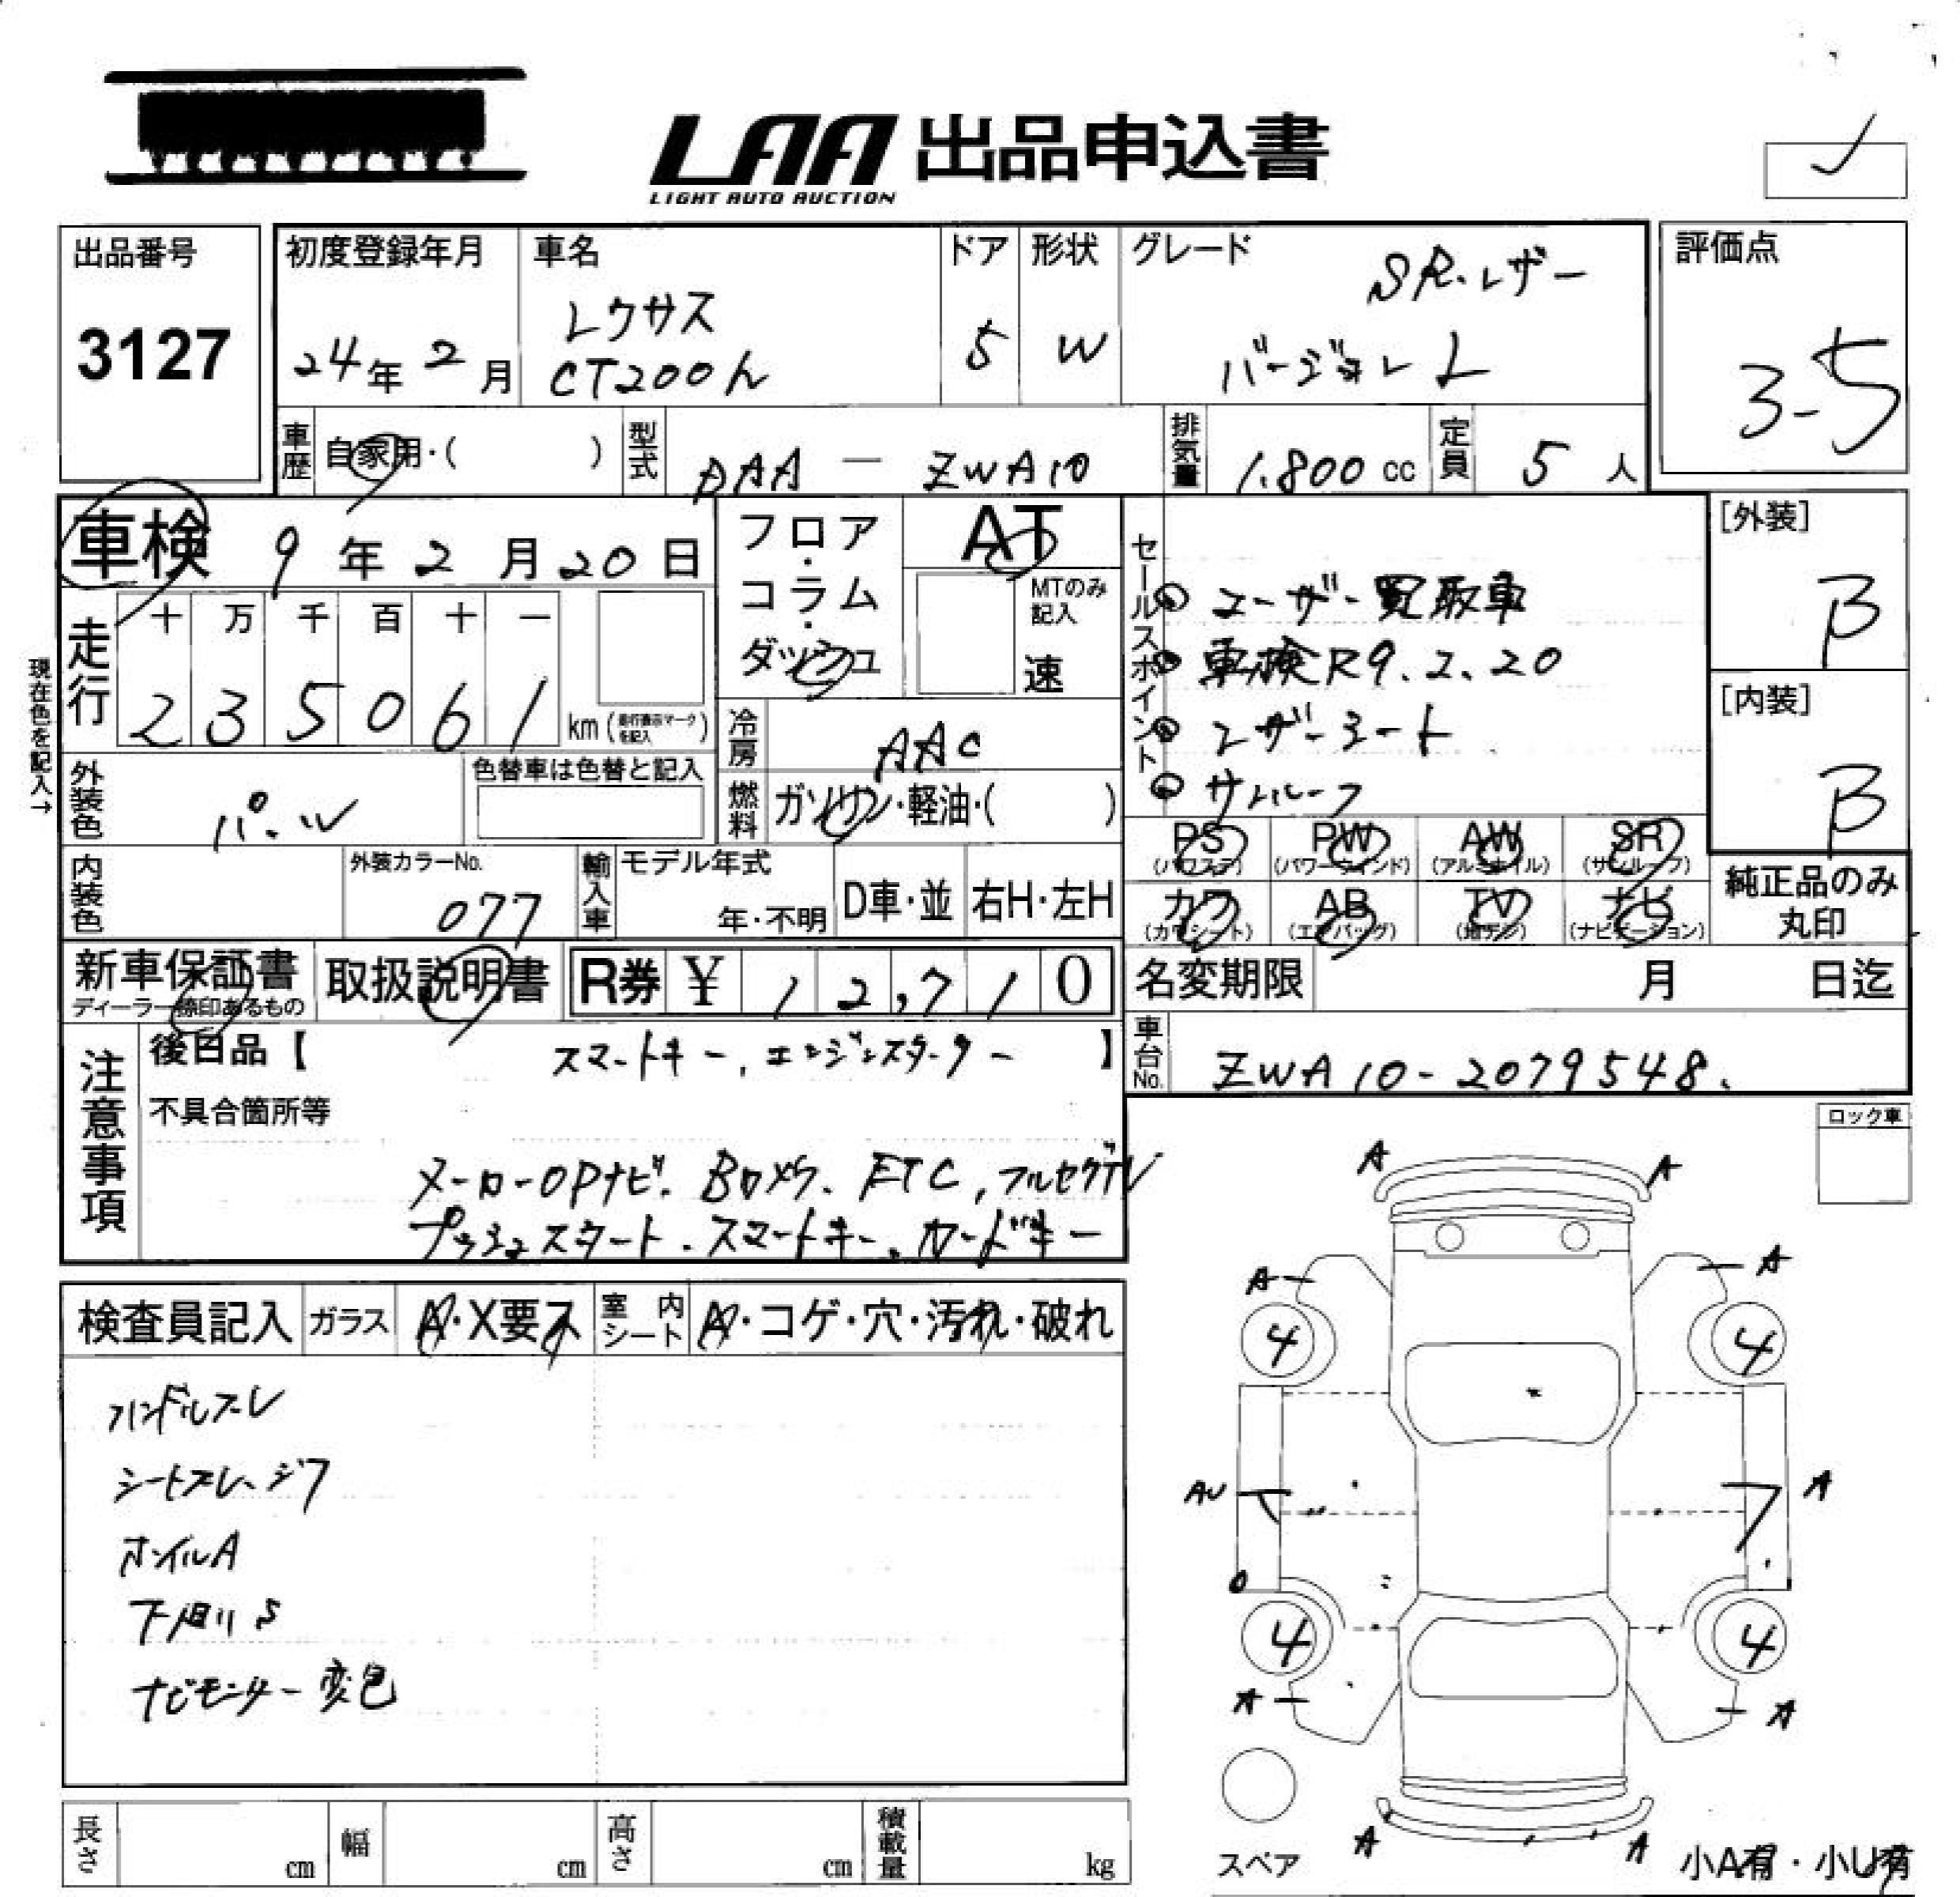 LAA 出品申込書
LIGHT AUTO AUCTION
出品番号
3127
初度登録年月
24年 2月
車名
レクサス
CT200h
ドア
5
形状
W
グレード
SR.レザー
バージョンL
評価点
3-5
車歴
自家用・( )
型式
DAA — ZWA10
排気量
1.800 cc
定員
5 人
車検 9年 2月 20日
フロア・コラム・ダッシュ
AT
MTのみ記入
速
セールスポイント
ユーザー買取車
車検R9.2.20
レザーシート
サンルーフ
[外装]
B
[内装]
B
現在色を記入→
走行
十 万 千 百 十 一
2 3 5 0 6 1
km (走行表示マークを記入)
冷房
AAC
燃料
ガソリン・軽油・( )
外装色
パール
色替車は色替と記入
内装色
外装カラーNo.
077
輸入車
モデル年式
年・不明
D車・並
右H・左H
PS (パワステ)
PW (パワーウインド)
AW (アルミホイル)
SR (サンルーフ)
カワ (カワシート)
AB (エアバッグ)
TV (地デジ)
ナビ (ナビゲーション)
純正品のみ
丸印
新車保証書
ディーラー捺印あるもの
取扱説明書
R券 ¥ 12,710
名変期限 月 日迄
車台No.
ZWA10-2079548.
注意事項
後日品【 スマートキー, エンジンスターター 】
不具合箇所等
メーカーOPナビ. Bカメラ. ETC, フルセグTV
プッシュスタート. スマートキー. カードキー
ロック車
検査員記入
ガラス
A・X要ス
室内シート
A・コゲ・穴・汚れ・破れ
ハンドルスレ
シートスレ、シワ
ホイルA
下廻りS
ナビモニター変色
A
A
A
A
4
4
AU
A
4
4
A
A
A
A
スペア
小A有・小U有
長さ cm
幅 cm
高さ cm
積載量 kg